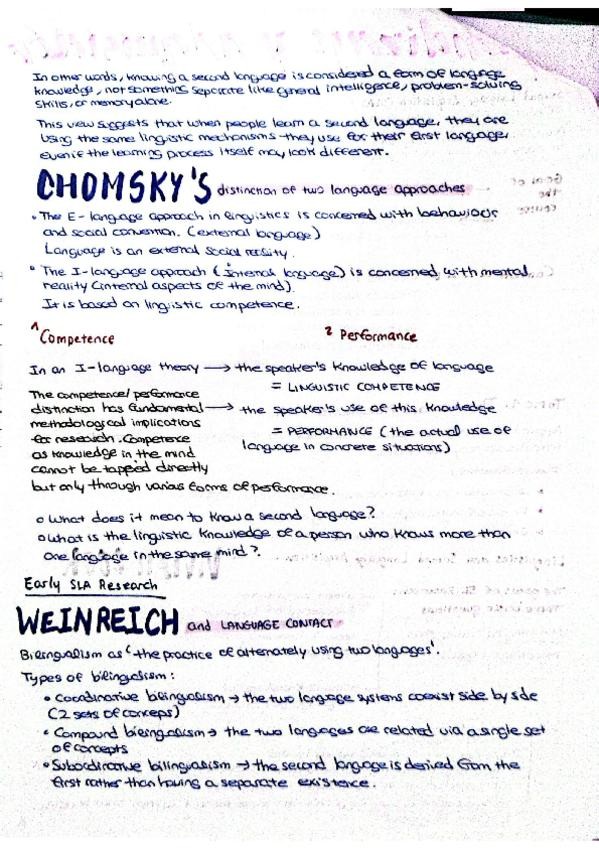 In other words, knowing a second language is considered a form of language
knowledge, not something separate like general intelligence, problem-solving
skills, or memory alone.
This view suggests that when people learn a second language, they are
using the same linguistic mechanisms they use for their first language,
even if the learning process itself may look different.
CHOMSKY'S distinction of two language approaches
• The E-language approach in linguistics is concerned with behaviour
and social convention. (external language)
Language is an external social reality.
• The I-language approach (Internal language) is concerned with mental
reality (internal aspects of the mind).
It is based on linguistic competence.
1 Competence 2 Performance
In an I-language theory → the speaker's knowledge of language
= LINGUISTIC COMPETENCE
The competence/performance
distinction has fundamental → the speaker's use of this knowledge
methodological implications = PERFORMANCE (the actual use of
for research. Competence language in concrete situations)
as knowledge in the mind
cannot be tapped directly
but only through various forms of performance.
o What does it mean to know a second language?
o What is the linguistic knowledge of a person who knows more than
one language in the same mind?
Early SLA Research
WEINREICH and LANGUAGE CONTACT
Bilingualism as 'the practice of alternately using two languages'.
Types of bilingualism:
• Coordinative bilingualism → the two language systems coexist side by side
(2 sets of concepts)
• Compound bilingualism → the two languages are related via a single set
of concepts
• Subordinative bilingualism → the second language is derived from the
first rather than having a separate existence.